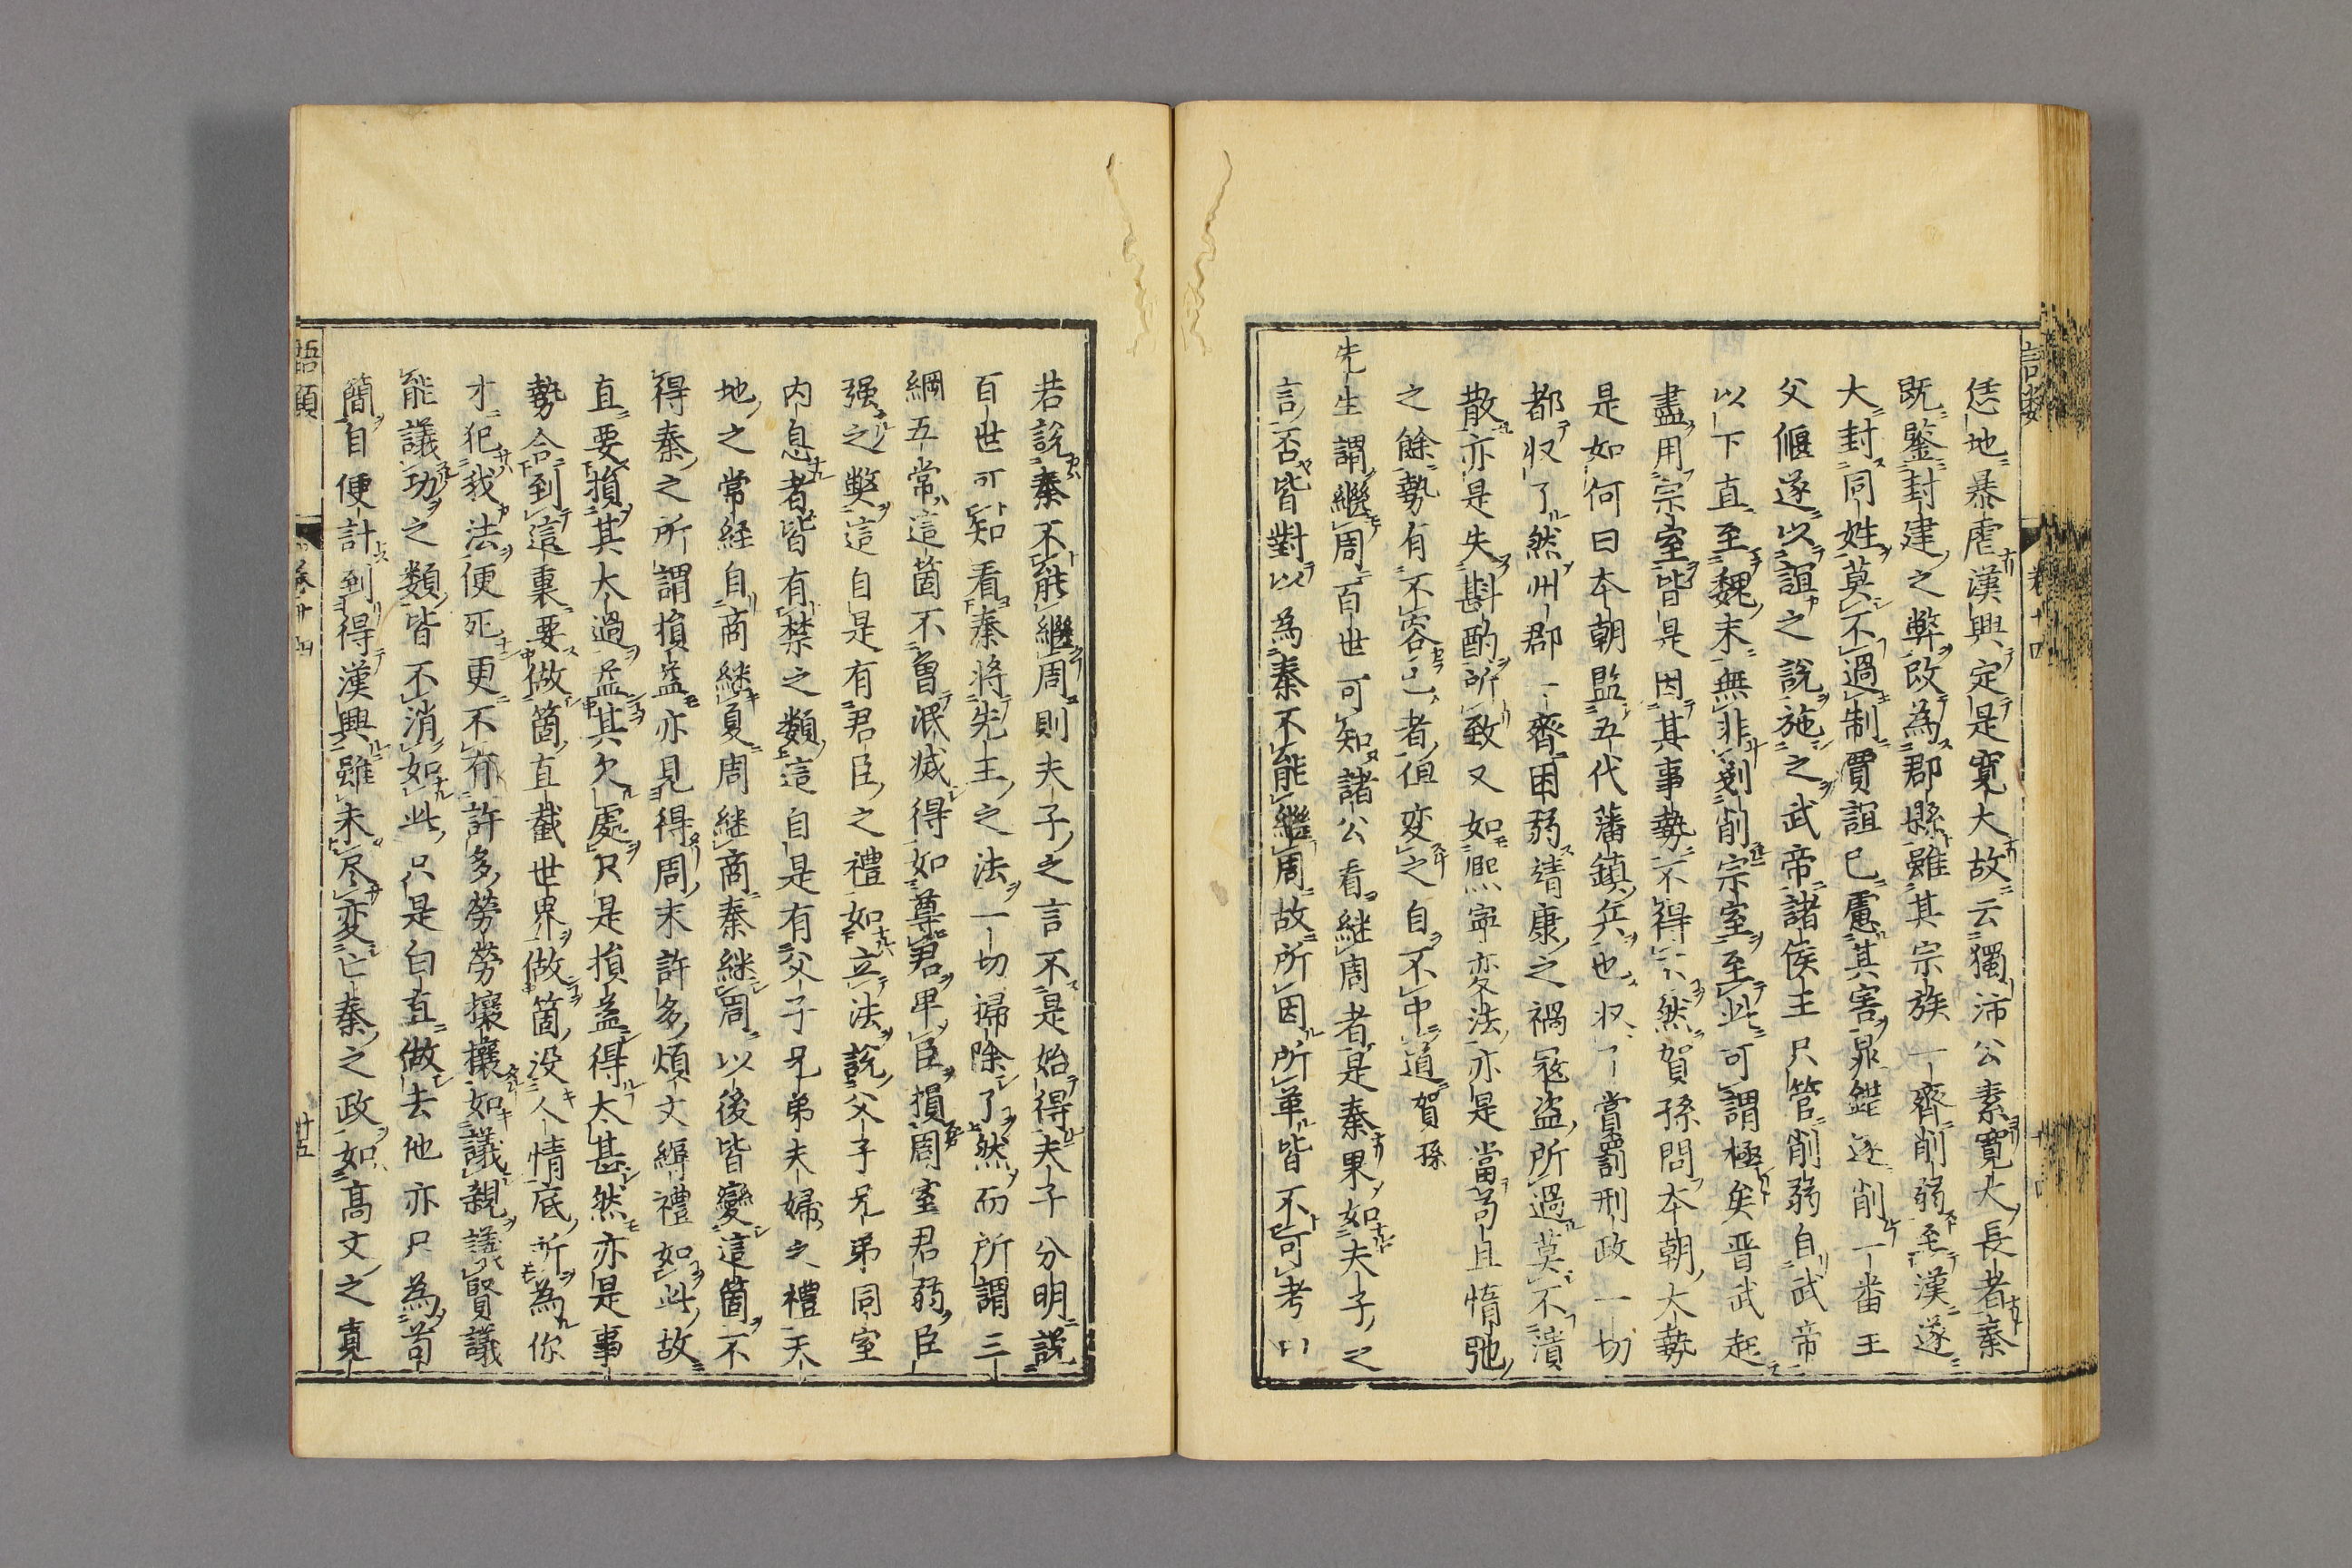 恁地暴虐漢興定是寛大故云獨沛公素寛大長者秦
既鑒封建之弊改為郡縣雖其宗族一齊削弱至漢遂
大封同姓莫不過制賈誼已慮其害晁錯遂削一番主
父偃遂以誼之說施之武帝諸侯王只管削弱自武帝
以下直至魏末無非剗削宗室至此可謂極矣晋武起
盡用宗室皆是因其事勢不得不然賀孫問本朝大勢
是如何曰本朝監五代藩鎮兵也収了賞罰刑政一切
都収了然州郡一齊困弱靖康之禍冦盗所過莫不潰
散亦是失斟酌所致又如熈寧変法亦是當苟且惰弛
之餘勢有不容已者但変之自不中道賀孫
先生謂繼周百世可知諸公看継周者是秦果如夫子之
言否皆對以為秦不能繼周故所因所革皆不可考曰
若說秦不能繼周則夫子之言不是始得夫子分明說
百世可知看秦將先王之法一切掃除了然而所謂三
綱五常這箇不曽泯滅得如尊君卑臣損周室君弱臣
强之獘這自是有君臣之禮如立法說父子兄弟同室
内息者皆有禁之類這自是有父子兄弟夫婦之禮天
地之常経自商継夏周継商秦継周以後皆變這箇不
得秦之所謂損益亦見得周末許多煩文縟禮如此故
直要損其太過益其欠處只是損益得太甚然亦是事
勢合到這裏要做箇直截世界做箇没人情底所為你
才犯我法便死更不有許多勞勞攘攘如議親議賢議
能議功之類皆不消如此只是白直做去他亦只為苟
簡自便計到得漢興雖未尽変亡秦之政如髙文之寛
語類
卷十四
廿五